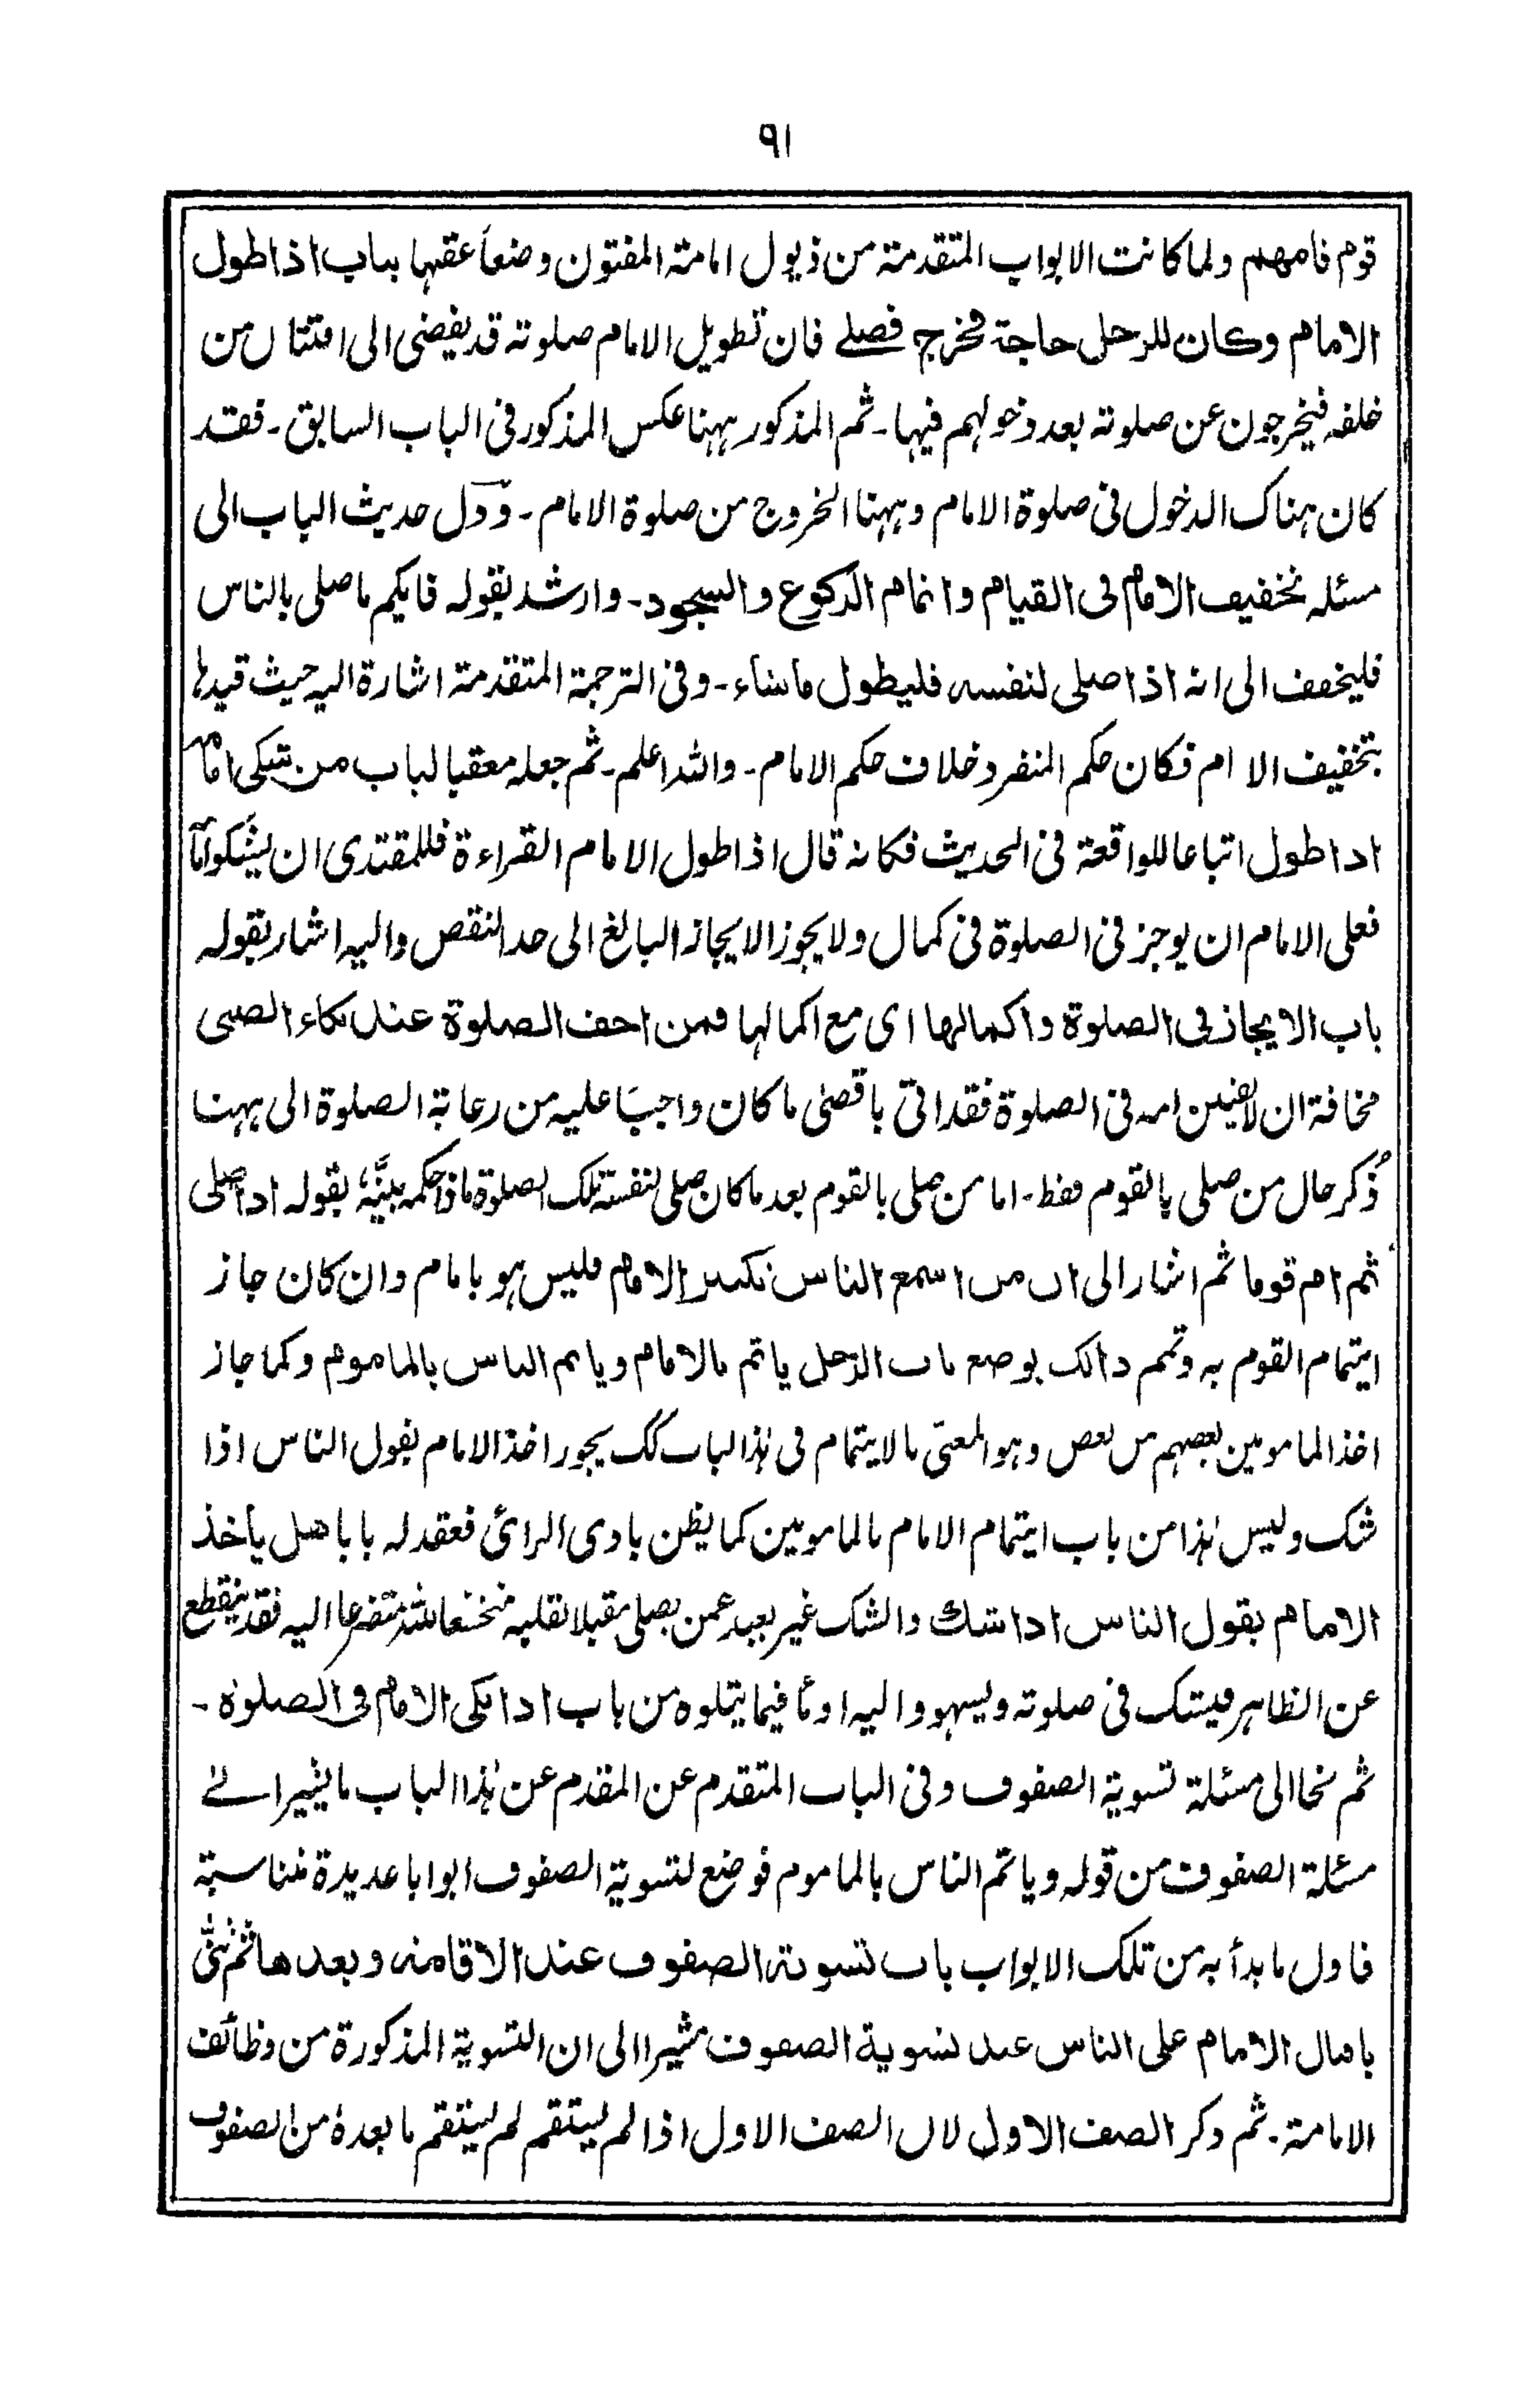 ٩١
قوم فامهم ولما كانت الابواب المتقدمة من ذيول امامة المفتون وضعاً عقبها بباب اذا طول
الامام وكان للرجل حاجة فخرج فصلے فان تطويل الامام صلوته قد يفضى الى افتتان من
خلفه فيخرجون عن صلوته بعد دخولهم فيها۔ ثم المذكور ههنا عكس المذكور فى الباب السابق۔ فقد
كان هناك الدخول فى صلوة الامام وههنا الخروج من صلوة الامام۔ ودل حديث الباب الى
مسئله تخفيف الامام فى القيام واتمام الركوع والسجود۔ وارشد بقوله فايكم ما صلى بالناس
فليخفف الى انه اذا صلى لنفسه فليطول ما شاء۔ وفى الترجمة المتقدمة اشارة اليه حيث قيدها
بتخفيف الامام فكان حكم المنفرد خلاف حكم الامام۔ والله اعلم۔ ثم جعله معقبا لباب من شكى امامه
اذا طول اتباعا للواقعة فى الحديث فكانه قال اذا طول الامام القراءة فللمقتدى ان يشكوا امامه
فعلى الامام ان يوجز فى الصلوة فى كمال ولا يجوز الايجاز البالغ الى حد النقص واليه اشار بقوله
باب الايجاز فى الصلوة واكمالها اى مع اكمالها فمن اخف الصلوة عند بكاء الصبى
مخافة ان لا يفتن امه فى الصلوة فقد اتى باقصى ما كان واجبا عليه من رعاية الصلوة الى ههنا
ذكر حال من صلى بالقوم فقط۔ اما من صلى بالقوم بعد ما كان صلى لنفسه تلك الصلوة ماذا حكمه بينه بقوله اذا صلى
ثم ام قوما ثم اشار الى ان من اسمع الناس تكبير الامام فليس هو بامام وان كان جاز
ايتمام القوم به وتمم ذالك بوضع باب الرجل ياتم بالامام وياتم الناس بالماموم وكما جاز
اخذ المامومين بعضهم من بعض وهو المعنى بالايتمام فى هذا الباب كك يجوز اخذ الامام بقول الناس اذا
شك وليس هذا من باب ايتمام الامام بالمامومين كما يظن بادى الرائ فعقد له بابا هل يأخذ
الامام بقول الناس اذا شك والشك غير بعيد عمن يصلى مقبلا بقلبه متخشعا لله متضرعا اليه فقد ينقطع
عن الظاهر فيشك فى صلوته ويسهو واليه اومأ فيما يتلوه من باب اذا بكى الامام فى الصلوة۔
ثم نحا الى مسئلة تسوية الصفوف وفى الباب المتقدم عن المقدم عن هذا الباب ما يشير الے
مسئلة الصفوف من قوله وياتم الناس بالماموم فوضع لتسوية الصفوف ابوابا عديدة متناسبة
فاول ما بدأ به من تلك الابواب باب تسوية الصفوف عند الاقامة وبعدها ثم ثنى
باقبال الامام على الناس عند تسوية الصفوف مشيرا الى ان التسوية المذكورة من وظائف
الامامة۔ ثم ذكر الصف الاول لان الصف الاول اذا لم يستقم لم يستقم ما بعده من الصفوف